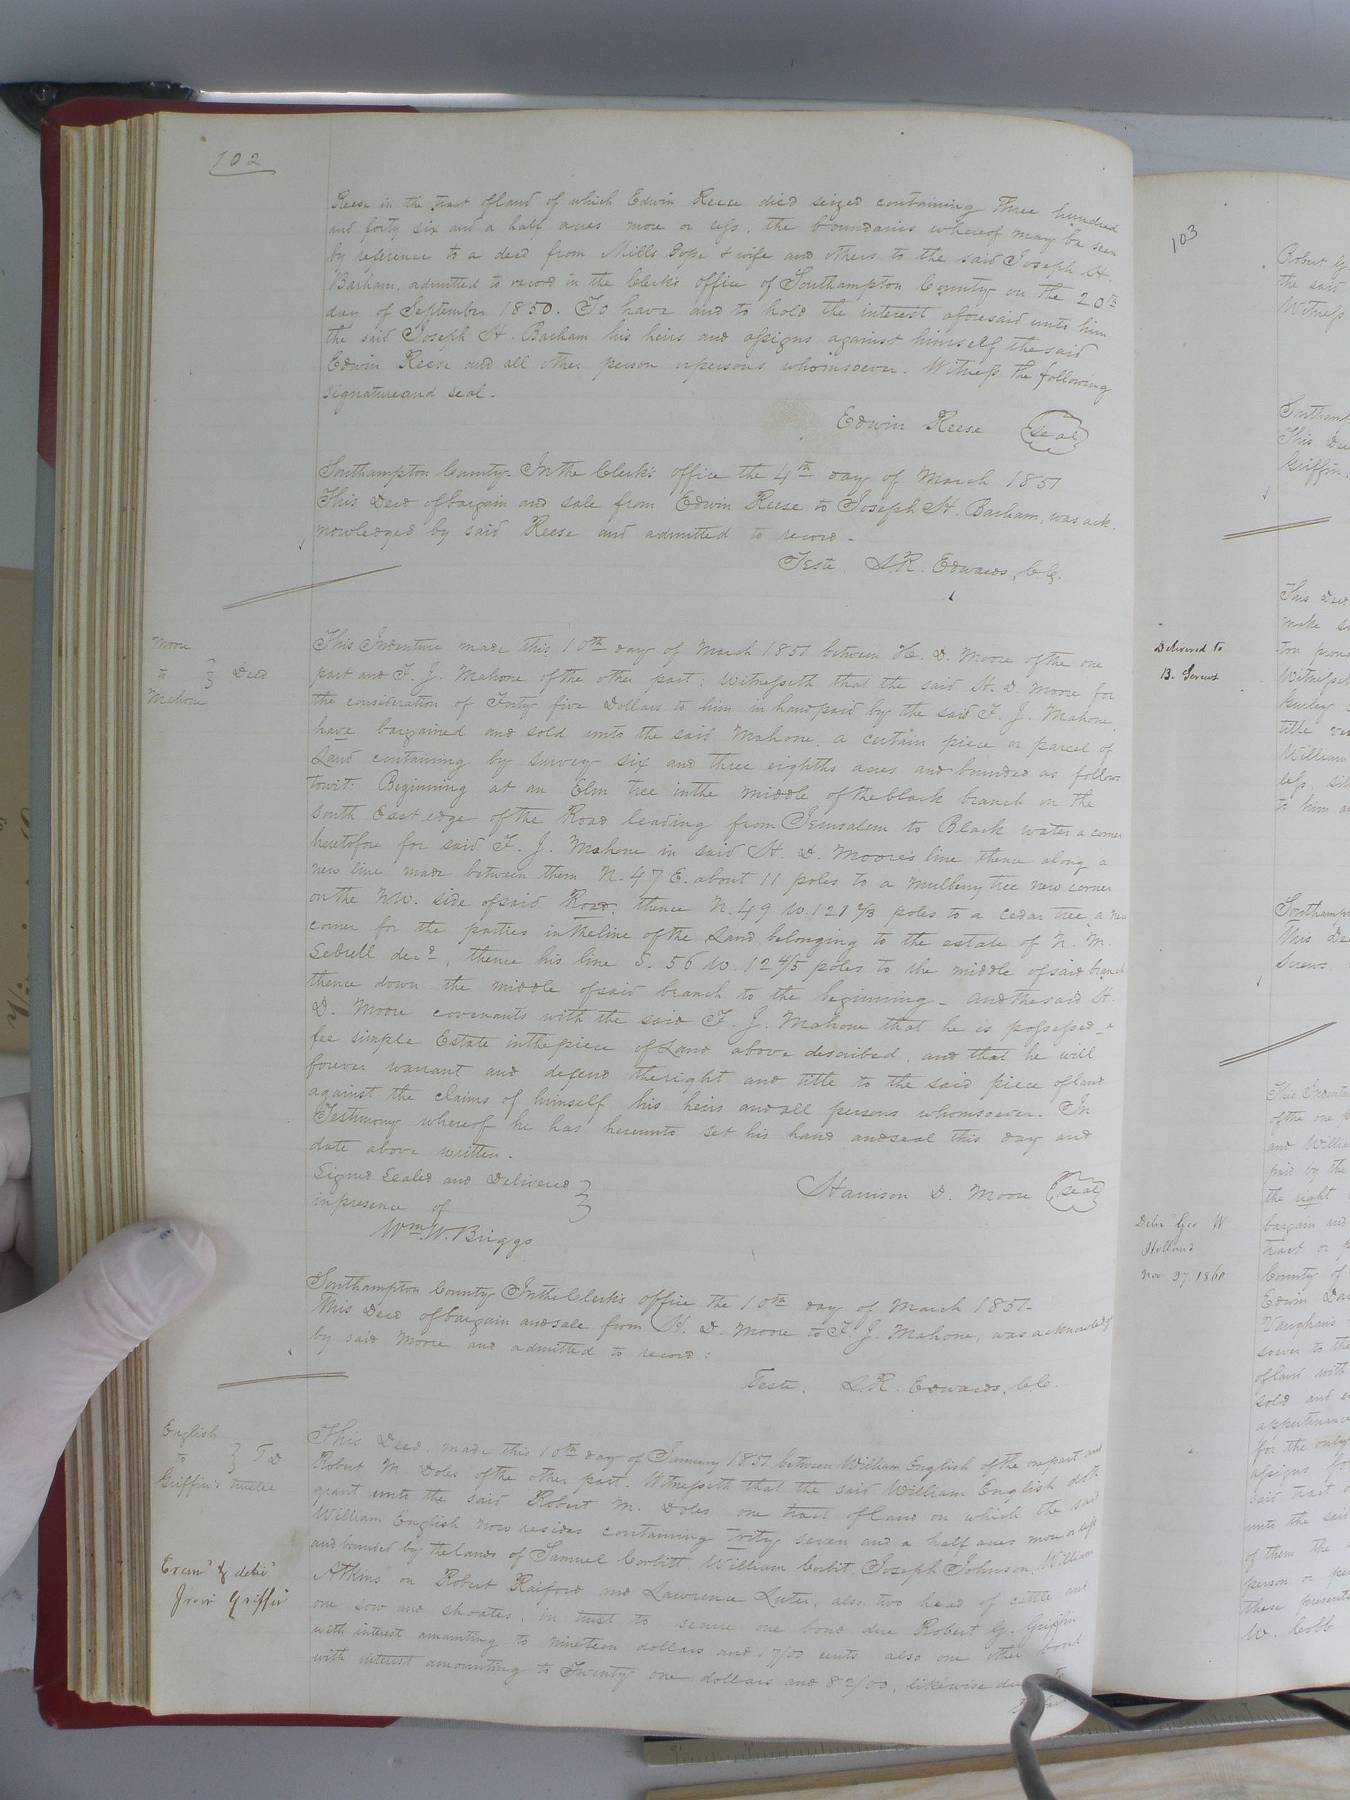 102
Reese in the tract of land of which Edwin Reese died seized containing Three hundred
and forty six and a half acres more or less, the boundaries whereof may be seen
by reference to a deed from Mills Pope & wife and others to the said Joseph H.
Barham, admitted to record in the Clerk's office of Southampton County on the 20th
day of September 1850. To have and to hold the interest aforesaid unto him
the said Joseph H. Barham his heirs and assigns against himself the said
Edwin Reese and all other person or persons whomsoever. Witness the following
signature and seal.
Edwin Reese seal
Southampton County. In the Clerk's office the 4th day of March 1851
This Deed of bargain and sale from Edwin Reese to Joseph H. Barham, was ack-
nowledged by said Reese and admitted to record.
Teste. L.R. Edwards, C.C.
Moore
to } Deed
Mahone
This Indenture made this 10th day of March 1851 between H. D. Moore of the one
part and F. J. Mahone of the other part; Witnesseth that the said H. D. Moore for
the consideration of Forty five Dollars to him in hand paid by the said F. J. Mahone,
have bargained and sold unto the said Mahone, a certain piece or parcel of
Land containing by survey six and three eighths acres and bounded as follows
towit: Beginning at an Elm tree in the middle of the black branch on the
South East edge of the Road leading from Jerusalem to Black water a corner
heretofore for said F. J. Mahone in said H. D. Moore's line thence along a
new line made between them N. 47 E. about 11 poles to a mulberry tree new corner
on the NW. side of said Road, thence N. 49 W. 121 2/3 poles to a cedar tree, a new
corner for the parties in the line of the Land belonging to the estate of N. M.
Sebrell decd, thence his line S. 56 W. 12 4/5 poles to the middle of said branch
thence down the middle of said branch to the beginning - and the said H.
D. Moore covenants with the said F. J. Mahone that he is possessed a
fee simple Estate in the piece of Land above described, and that he will
forever warrant and defend the right and title to the said piece of land
against the claims of himself his heirs and all persons whomsoever. In
Testimony whereof he has hereunto set his hand and seal this day and
date above written.
Signed Sealed and Delivered }
in presence of
Harrison D. Moore seal
Wm. W. Briggs
Southampton County In the Clerk's office the 10th day of March 1851-
This Deed of bargain and sale from H. D. Moore to F. J. Mahone, was acknowledgd
by said Moore and admitted to record:
Teste. L.R. Edwards, C.C.
English
to } T D
Griffin's trustee
Exam' & deliv'
This Deed, made this 10th day of January 1851 between William English of the one part and
Robert M. Doles of the other part. Witnesseth that the said William English doth
grant unto the said Robert M. Doles one tract of land on which the said
William English now resides containing forty seven and a half acres more or less
and bounded by the lands of Samuel Corbitt William Corbit, Joseph Johnson, William
Atkins on Robert Raiford and Lawrence Luter, also two head of cattle and
one sow and shoates, in trust to secure one bond due Robert G. Griffin
with interest amounting to nineteen dollars and 17/00 cents also one other bond
with interest amounting to Twenty one dollars and 82/00, likewise due to
103
Robert G
the said
Witness
Southamp
This Dee
Griffin,
Delivered to
This Deed
make
Witnesseth
title
William
less,
to him
Southamp
This De
Deliv' Geo W
Holland
Nov 27 1860
This Indentu
of the one p
and William
paid by the
the right
bargain and
tract or p
County of
Edwin
Vaughan's
soever to the
of land with
sold and
appurtenance
for the only
assigns
said tract
unto the said
of them the
person or pe
these presents
W. Cobb